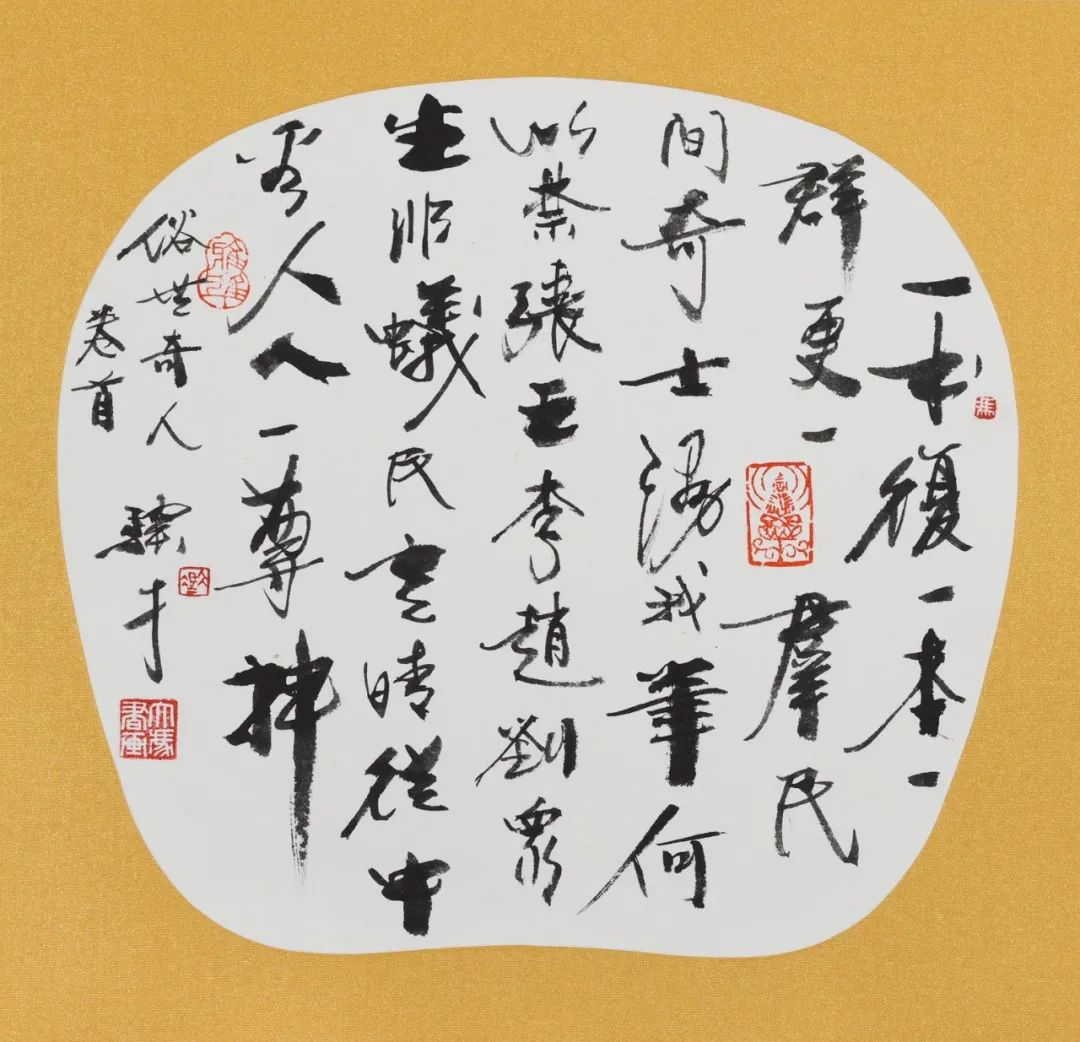 一本復一本一
群更一羣民
間奇士湧我筆何
以禁張王李趙劉眾
生非蟻民定睛從中
看人人一尊神
俗世奇人
卷首
驥才
大馮書画